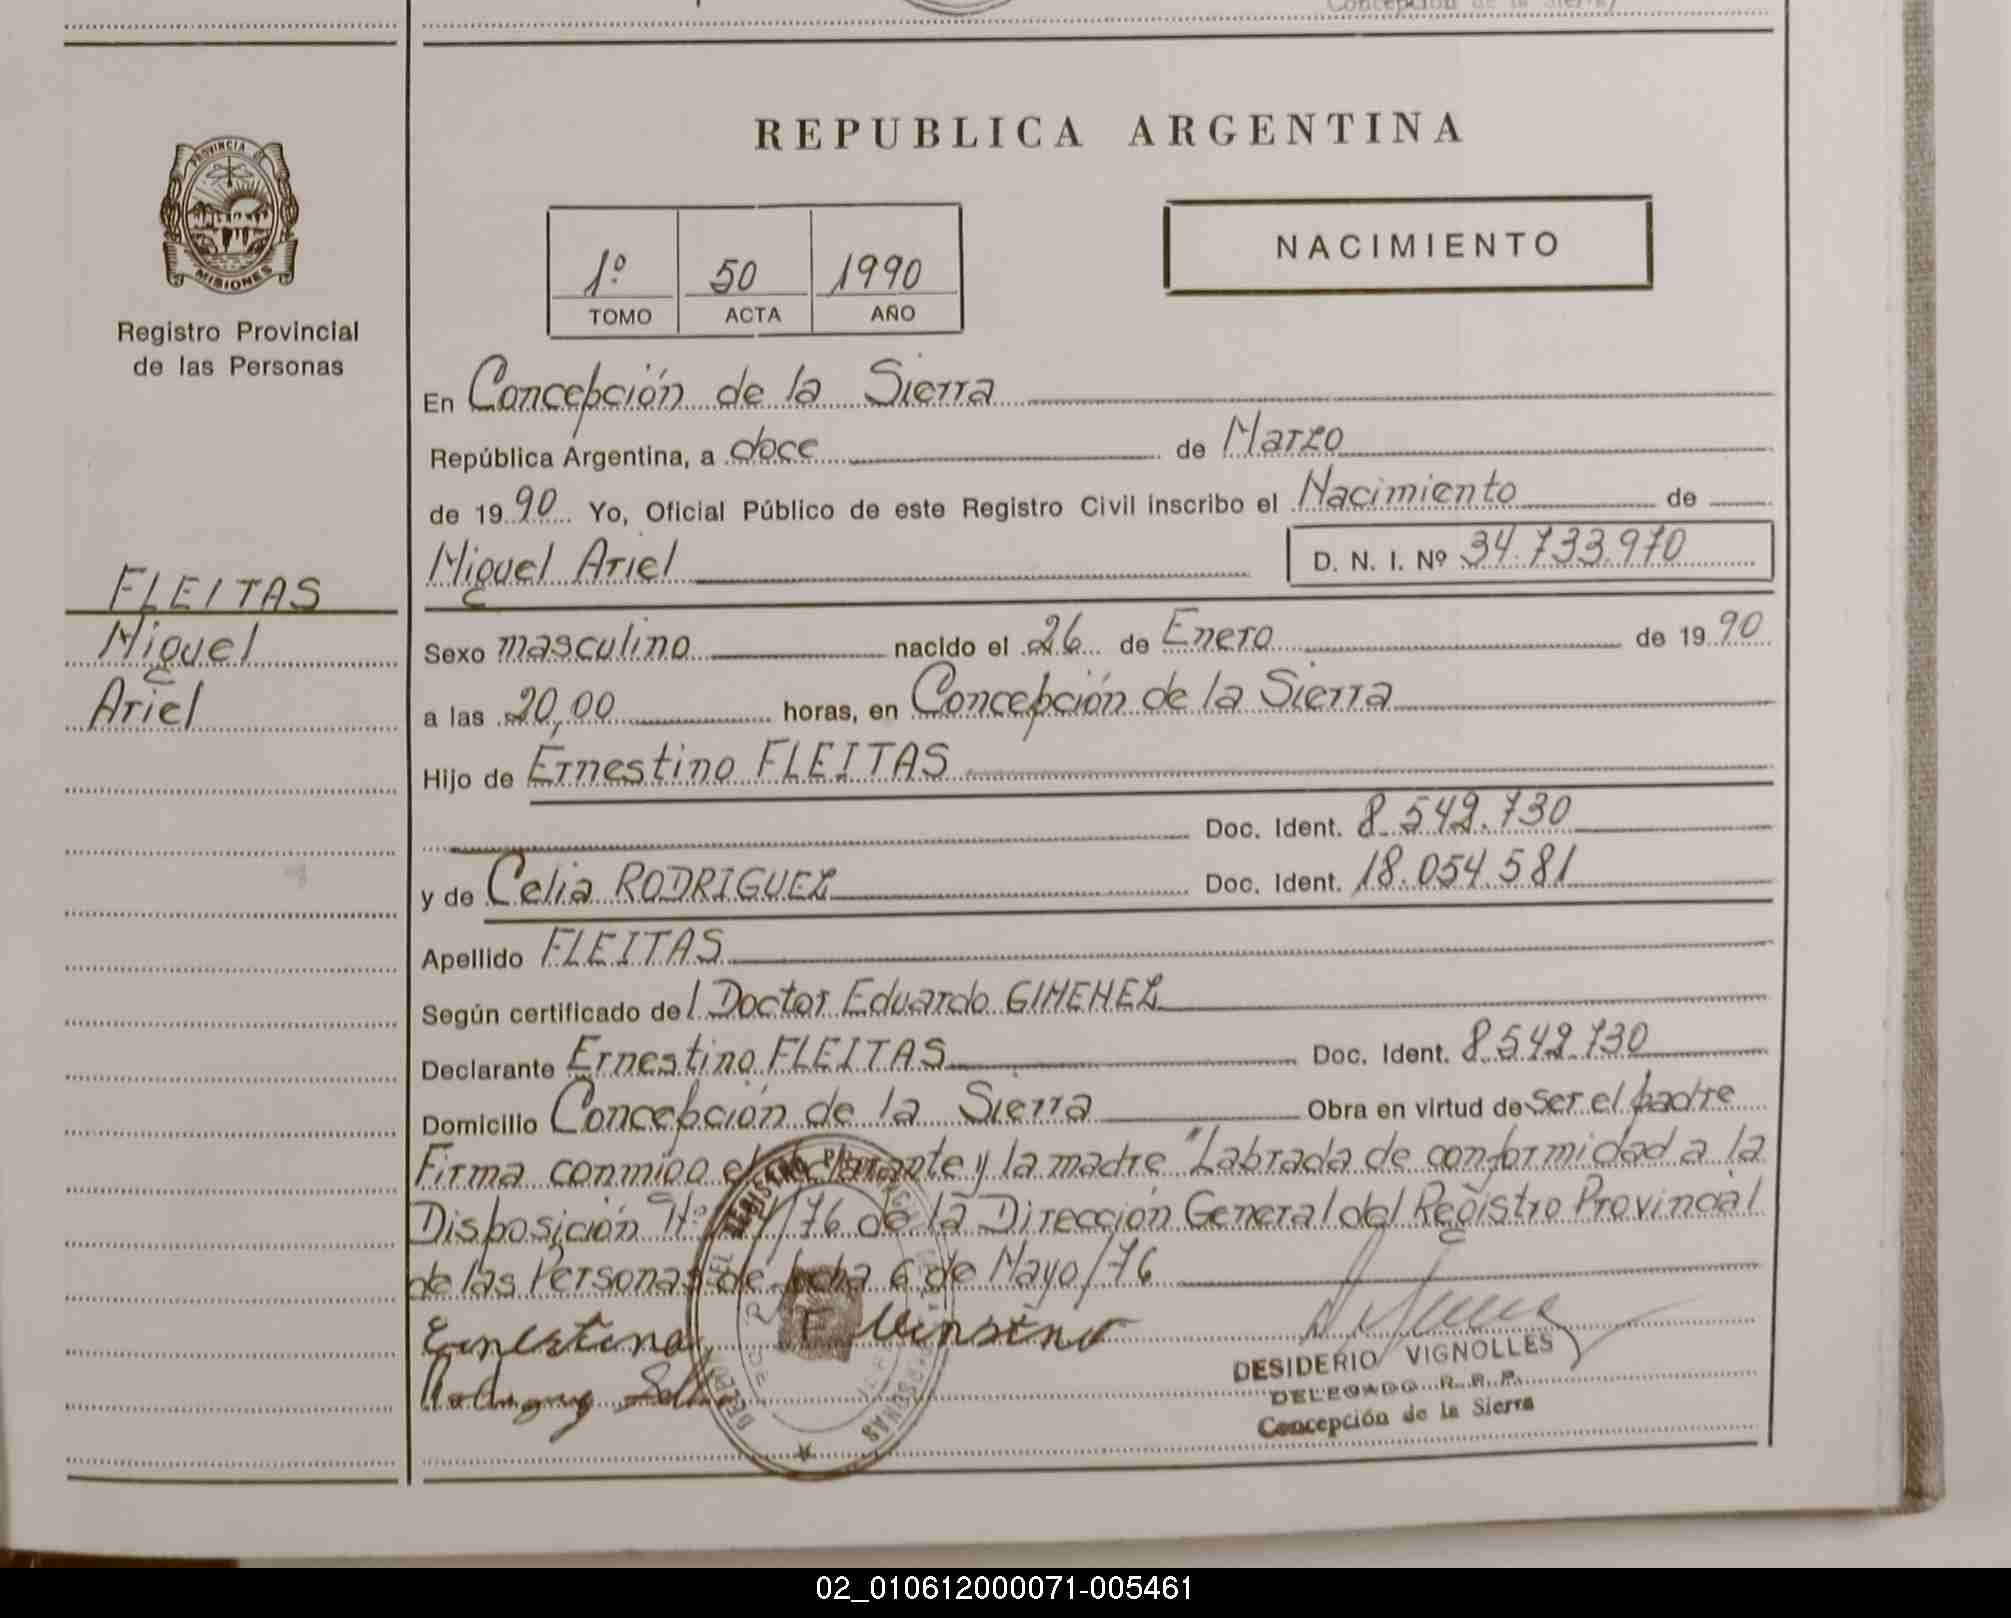 Concepción de la Sierra)
REPUBLICA ARGENTINA
PROVINCIA DE
MISIONES
Registro Provincial
de las Personas
1º 50 1990
TOMO ACTA AÑO
NACIMIENTO
En Concepción de la Sierra
República Argentina, a doce de Marzo
de 1990 Yo, Oficial Público de este Registro Civil inscribo el Nacimiento de
Miguel Ariel D. N. I. Nº 34.733.970
FLEITAS
Miguel
Ariel
Sexo masculino nacido el 26 de Enero de 1990
a las 20,00 horas, en Concepción de la Sierra
Hijo de Ernestino FLEITAS
Doc. Ident. 8.549.730
y de Celia RODRIGUEZ Doc. Ident. 18.054.581
Apellido FLEITAS
Según certificado del Doctor Eduardo GIMENEZ
Declarante Ernestino FLEITAS Doc. Ident. 8.549.730
Domicilio Concepción de la Sierra Obra en virtud de ser el padre
Firma conmigo el declarante y la madre "Labrada de conformidad a la
Disposición Nº /76 de la Dirección General del Registro Provincial
de las Personas de fecha 6 de Mayo/76
DESIDERIO VIGNOLLES
DELEGADO R. R. P.
Concepción de la Sierra
02_010612000071-005461